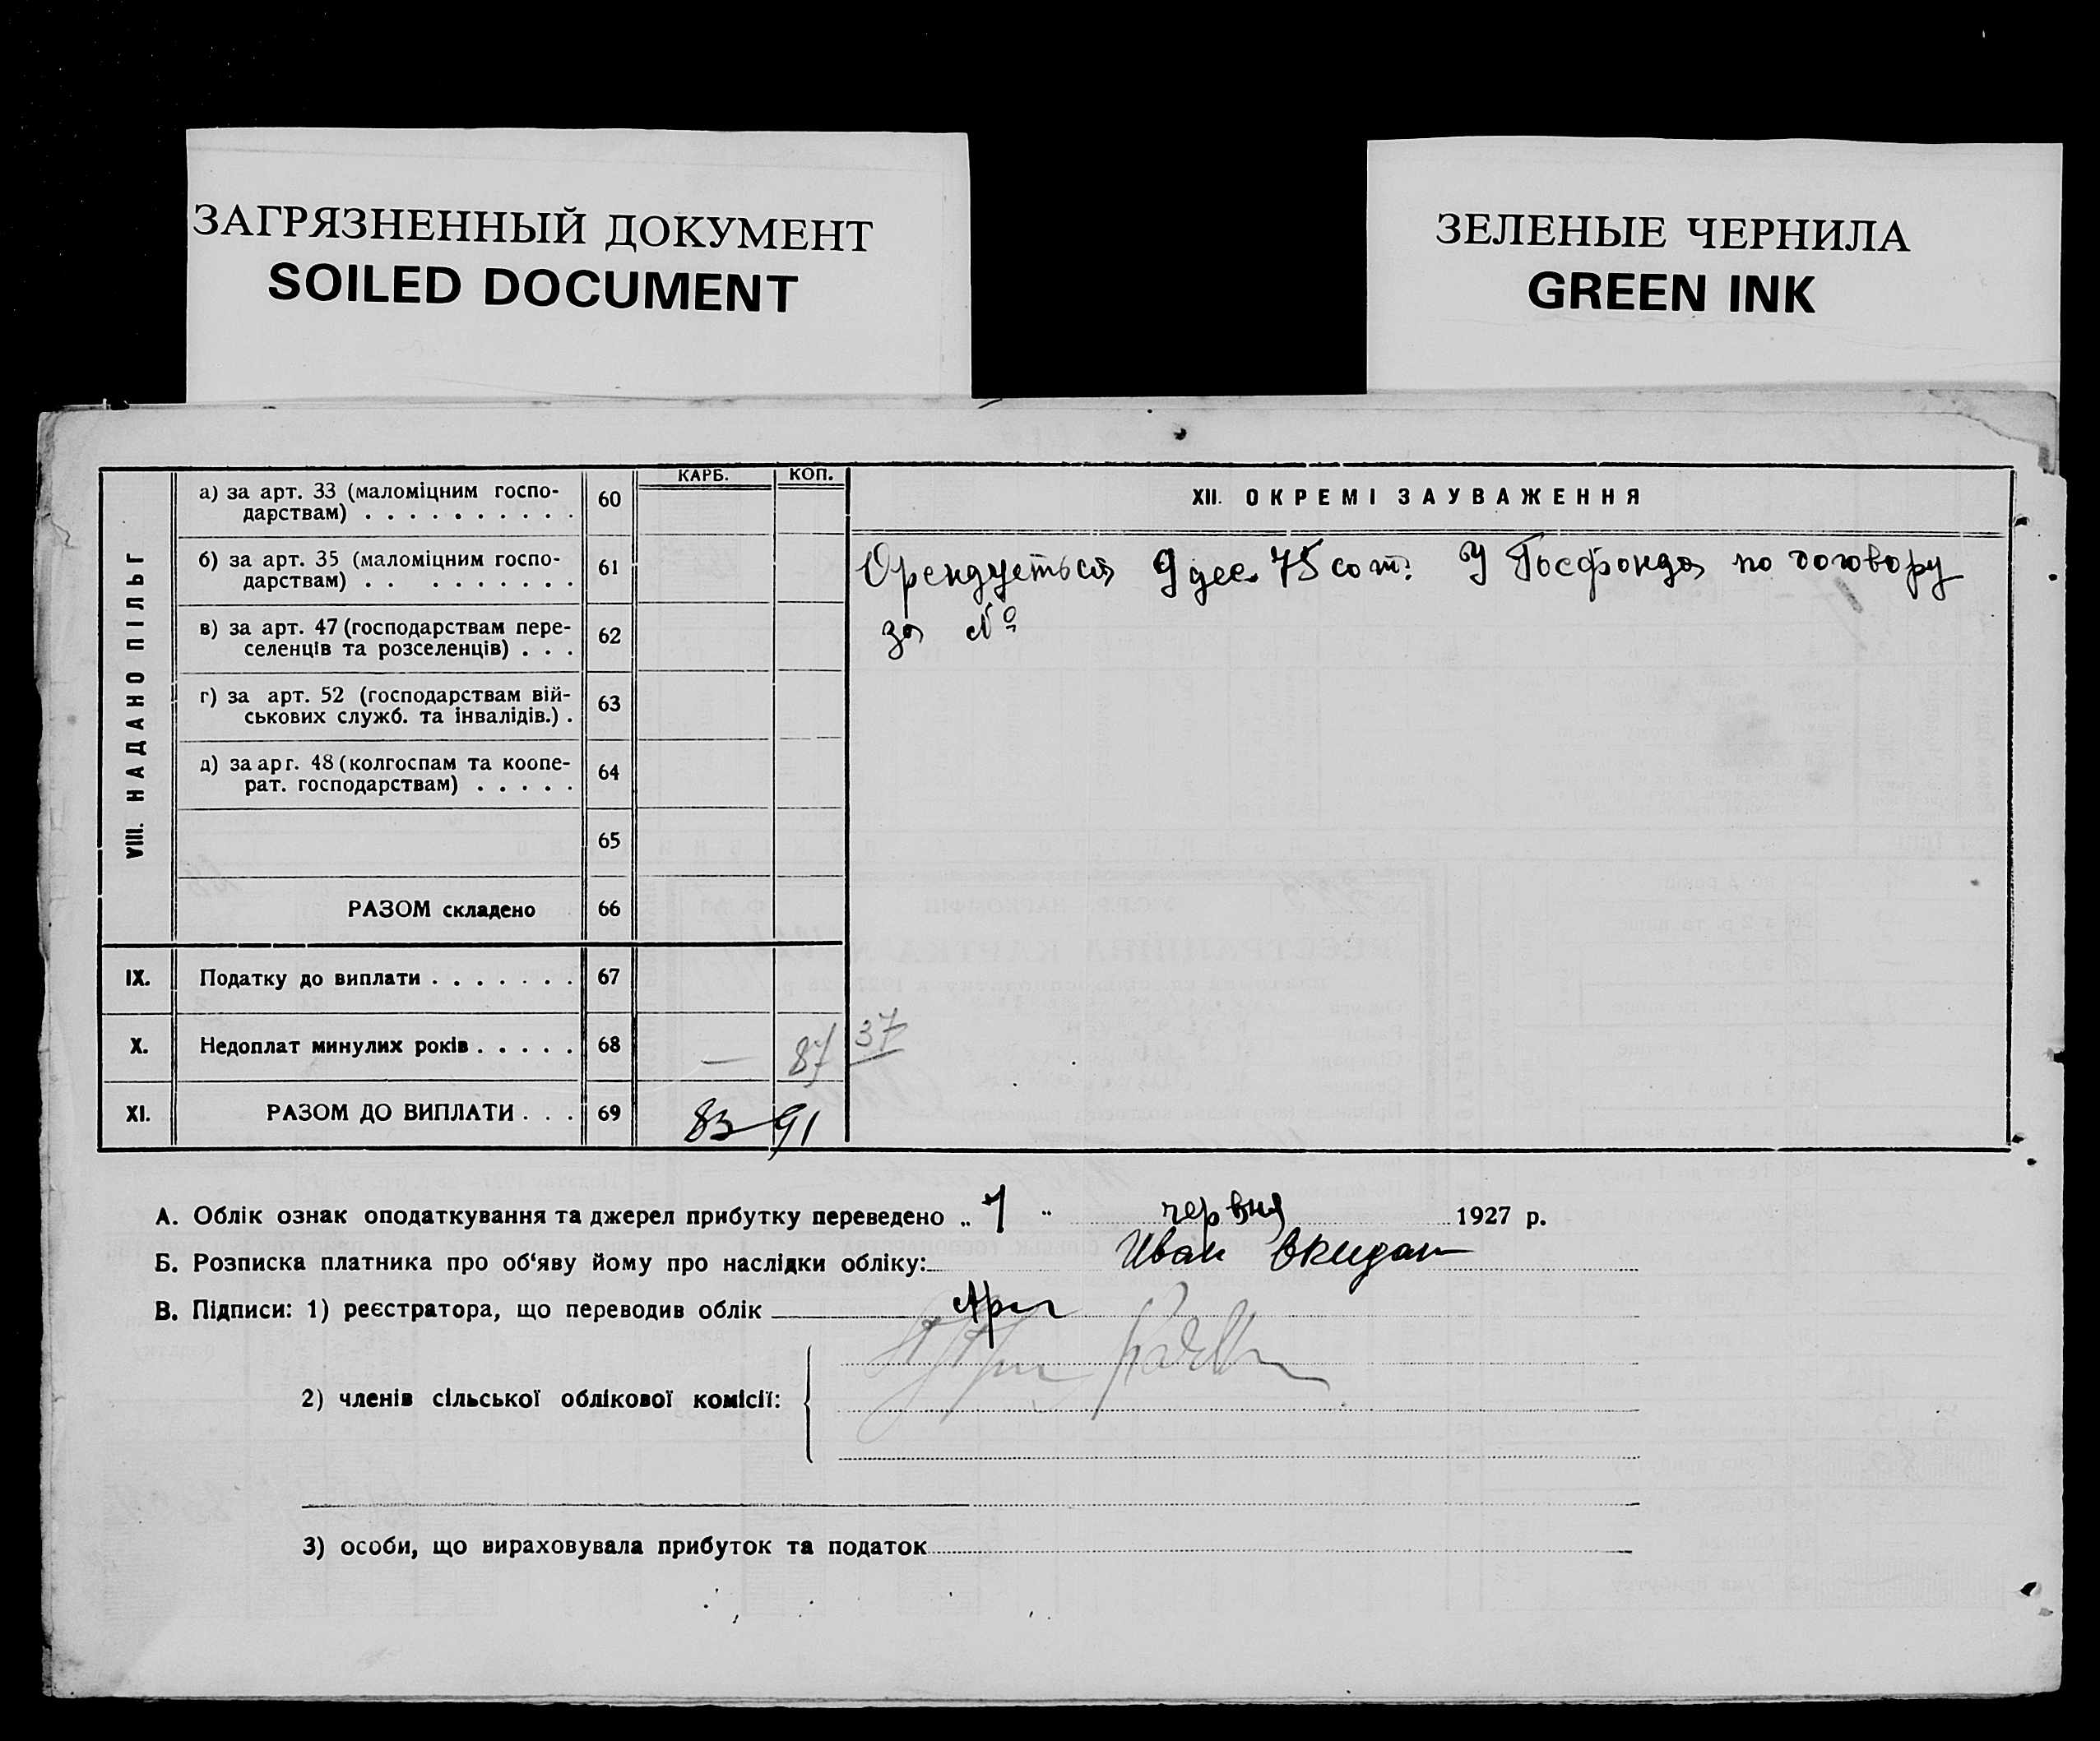 ЗАГРЯЗНЕННЫЙ ДОКУМЕНТ
SOILED DOCUMENT
ЗЕЛЕНЫЕ ЧЕРНИЛА
GREEN INK
VIII. НАДАНО ПІЛЬГ
КАРБ. КОП.
а) за арт. 33 (маломіцним госпо-
дарствам) . . . . . . . . . . 60
б) за арт. 35 (маломіцним госпо-
дарствам) . . . . . . . . . . 61
в) за арт. 47 (господарствам пере-
селенців та розселенців) . . . 62
г) за арт. 52 (господарствам вій-
ськових служб. та інвалідів.) . 63
д) за арг. 48 (колгоспам та коопе-
рат. господарствам) . . . . . 64
65
РАЗОМ складено 66
IX. Податку до виплати . . . . . . . 67
X. Недоплат минулих років . . . . . 68 — 87 37
XI. РАЗОМ ДО ВИПЛАТИ . . . 69 83 91
XII. ОКРЕМІ ЗАУВАЖЕННЯ
Орендується 9 дес. 75 сот. У Госфонда по договору
за №
А. Облік ознак оподаткування та джерел прибутку переведено „ 7 " червня 1927 р.
Б. Розписка платника про об'яву йому про наслідки обліку: Иван
В. Підписи: 1) реєстратора, що переводив облік
2) членів сільської облікової комісії:
3) особи, що вираховувала прибуток та податок